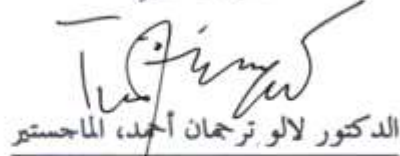 الدكتور لالو ترجمان أحمد، الماجستير